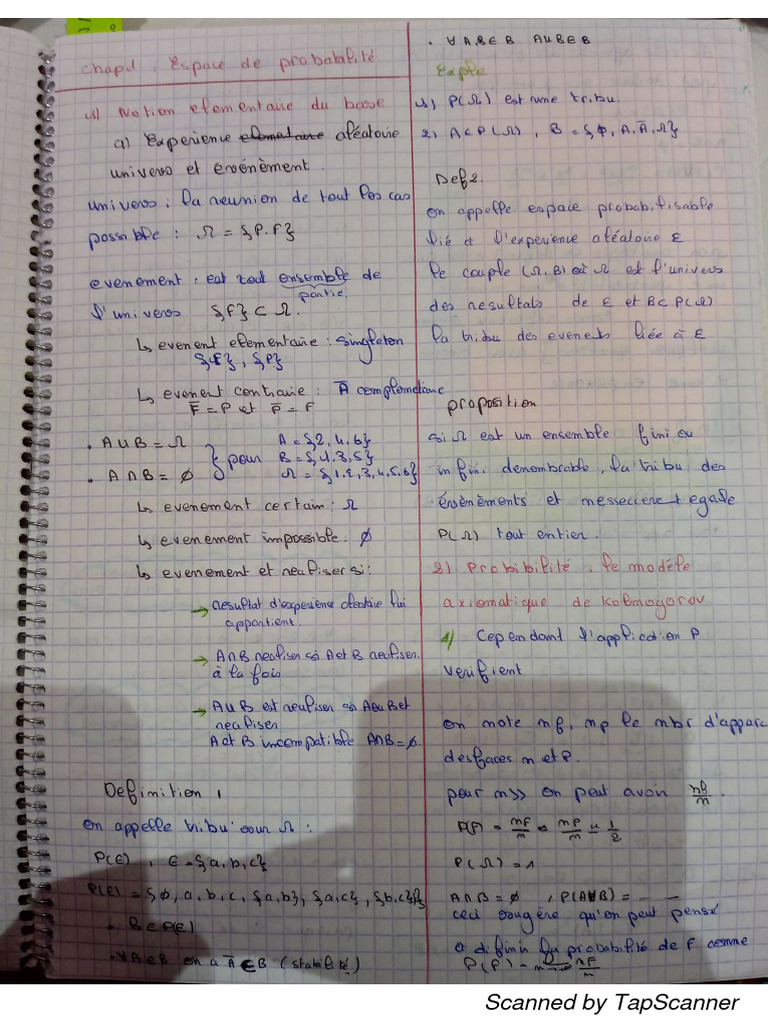 chap1 : Espace de probabalité
1) Notion elementaue du base
a) Experience elemetaire aléatoire
univers et evénèment.
univers : la reunion de tout les cas
possible : Ω = {P.F}
evenement : eat tout ensemble de
partie.
l'univers {F} ⊂ Ω.
↳ evenent elementaire : singleton
{F}, {P}
↳ evenent contraire : Ā complemetaire
F̄ = P et P̄ = F
. A∪B = Ω } pour A = {2,4,6}
B = {1,3,5}
. A∩B = ∅ Ω = {1,2,3,4,5,6}
↳ evenement certain : Ω
↳ evenement impossible. ∅
↳ evenement et realiser si :
→ resultat d'experience aleatoire lui
appartient.
→ A∩B realiser si A et B realiser
à la fois
→ A∪B est realiser si A ou B et
realiser
A et B incompatible A∩B = ∅.
Definition 1
on appelle tribu sur Ω :
P(E), E = {a, b, c}
P(E) = {∅, a, b, c, {a,b}, {a,c}, {b,c}}
. B∈P(E)
. ∀A∈B on a Ā∈B (stabilité)
. ∀A,B∈B A∪B∈B
Exple
1) P(Ω) est une tribu.
2) A⊂P(Ω), B = {∅, A, Ā, Ω}
Def 2.
on appelle espace probabilisable
lié à l'experience aléatoire ε
le couple (Ω, B) où Ω est l'univers
des resultats de ε et B⊂P(Ω)
la tribu des evenets liée à ε
proposition
si Ω est un ensemble fini ou
infini. denombrable, la tribu des
événèments et egale
P(Ω) tout entier.
2) Probibilité, le modéle
axiomatique de Kolmogorov
1) Cependant l'application P
verifient
on note nf, np le nbr d'apparc
des faces n et P.
pour n>> on peut avoir nf/n.
P(F) = nf/n ≈ np/n ≈ 1/2
P(Ω) = 1
A∩B = ∅, P(A∪B) = — —
ceci sugère qu'on peut pensé
a difinir la probabilité de F comme
P(F) = nF/n
Scanned by TapScanner